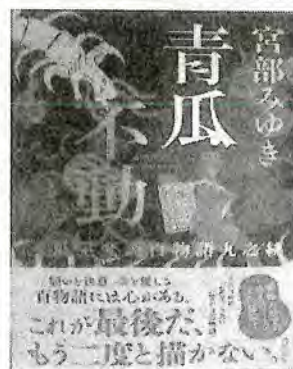 宮部みゆき
青瓜
不動
三島屋変調百物語九之続
百物語には心がある。
これが最後だ、
もう二度と描かない。